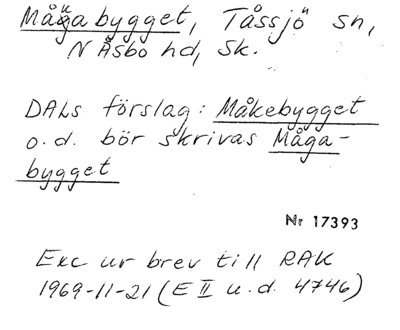 Mågabygget, Tåssjö sn,
N Åsbo hd, Sk.
DALs förslag: Måkebygget
o.d. bör skrivas Måga-
bygget
Nr 17393
Exc ur brev till RAK
1969-11-21 (E II u.d. 4746)